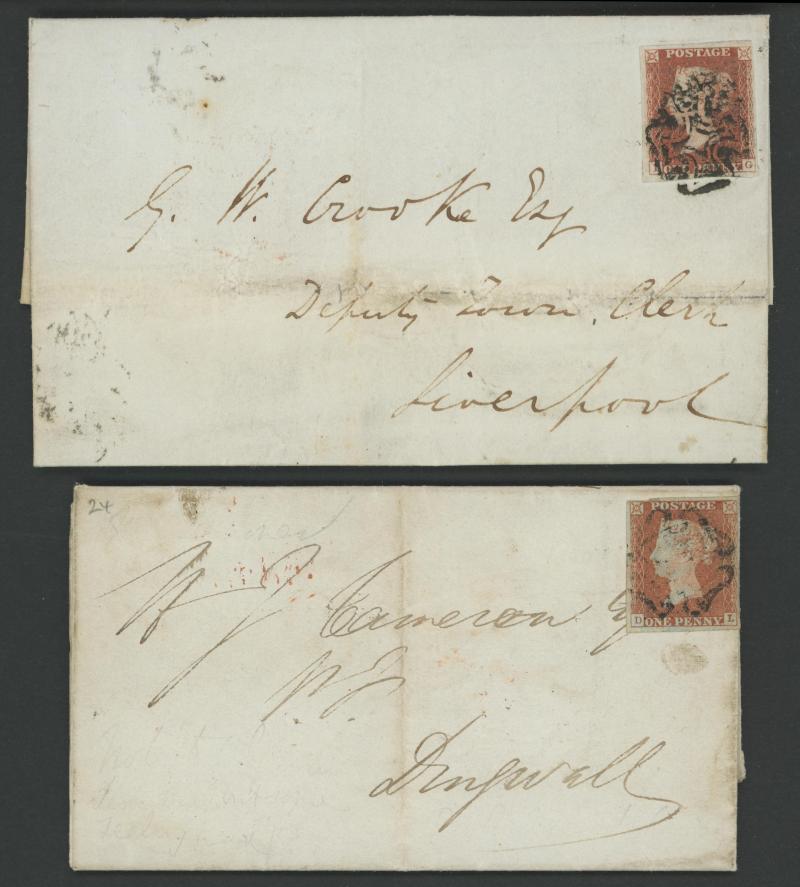 POSTAGE
ONE PENNY G
G. W. Crooke Esq
Deputy Town Clerk
Liverpool
24
POSTAGE
D ONE PENNY L
Cameron Esq
Dingwall